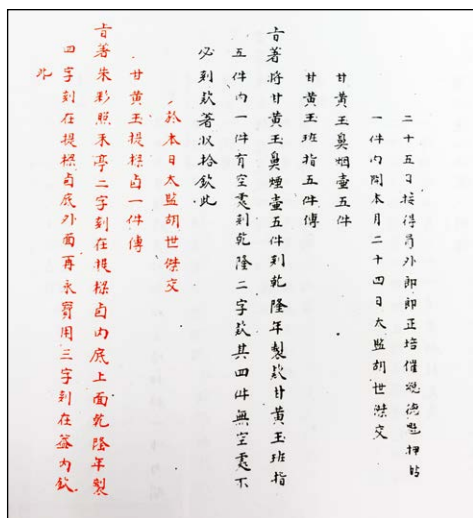 二十五日接得員外郎郎正培催總德魁押帖
一件內開本月二十四日太監胡世傑交
甘黃玉鼻烟壺五件
甘黃玉班指五件傳
旨著將甘黃玉鼻煙壺五件刻乾隆年製欵甘黃玉班指
五件內一件有空處刻乾隆二字欵其四件無空處不
必刻欵著收拾欽此
於本日太監胡世傑交
甘黃玉提樑卣一件傳
旨著朱彩照禾亭二字刻在提樑卣內底上面乾隆年製
四字刻在提樑卣底外面再永寶用三字刻在蓋內欽
此